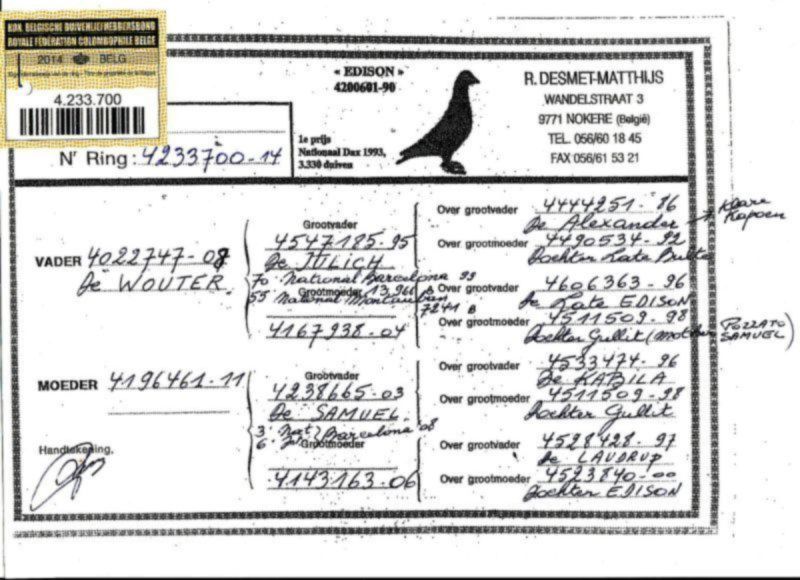 KON. BELGISCHE DUIVENLIEFHEBBERSBOND
ROYALE FEDERATION COLOMBOPHILE BELGE
2014 BELG
4.233.700
Nr Ring: 4233700-14
« EDISON »
4200601-90
1e prijs
Nationaal Dax 1993,
3.330 duiven
R. DESMET-MATTHIJS
WANDELSTRAAT 3
9771 NOKERE (België)
TEL. 056/60 18 45
FAX 056/61 53 21
VADER 4022747-08
De WOUTER
Grootvader
4547185-95
De JULICH
70. National Barcelona 99
13.966 B
55 National Montauban
7241 B
Grootmoeder
4167938-04
Over grootvader 4444251-86
De Alexander → Klare Kapoen
Over grootmoeder 4490534-92
Dochter Late Bulta
Over grootvader 4606363-96
De Late EDISON
Over grootmoeder 4511509-98
Dochter Gullit (mother POZZATO SAMUEL)
MOEDER 4196461-11
Grootvader
4238665-03
De SAMUEL
3. Nat Barcelona 08
6.
Grootmoeder
4143163-06
Over grootvader 4533474-96
De KABILA
Over grootmoeder 4511509-98
Dochter Gullit
Over grootvader 4528428-97
De LAUDRUP
Over grootmoeder 4523840-00
Dochter EDISON
Handtekening,